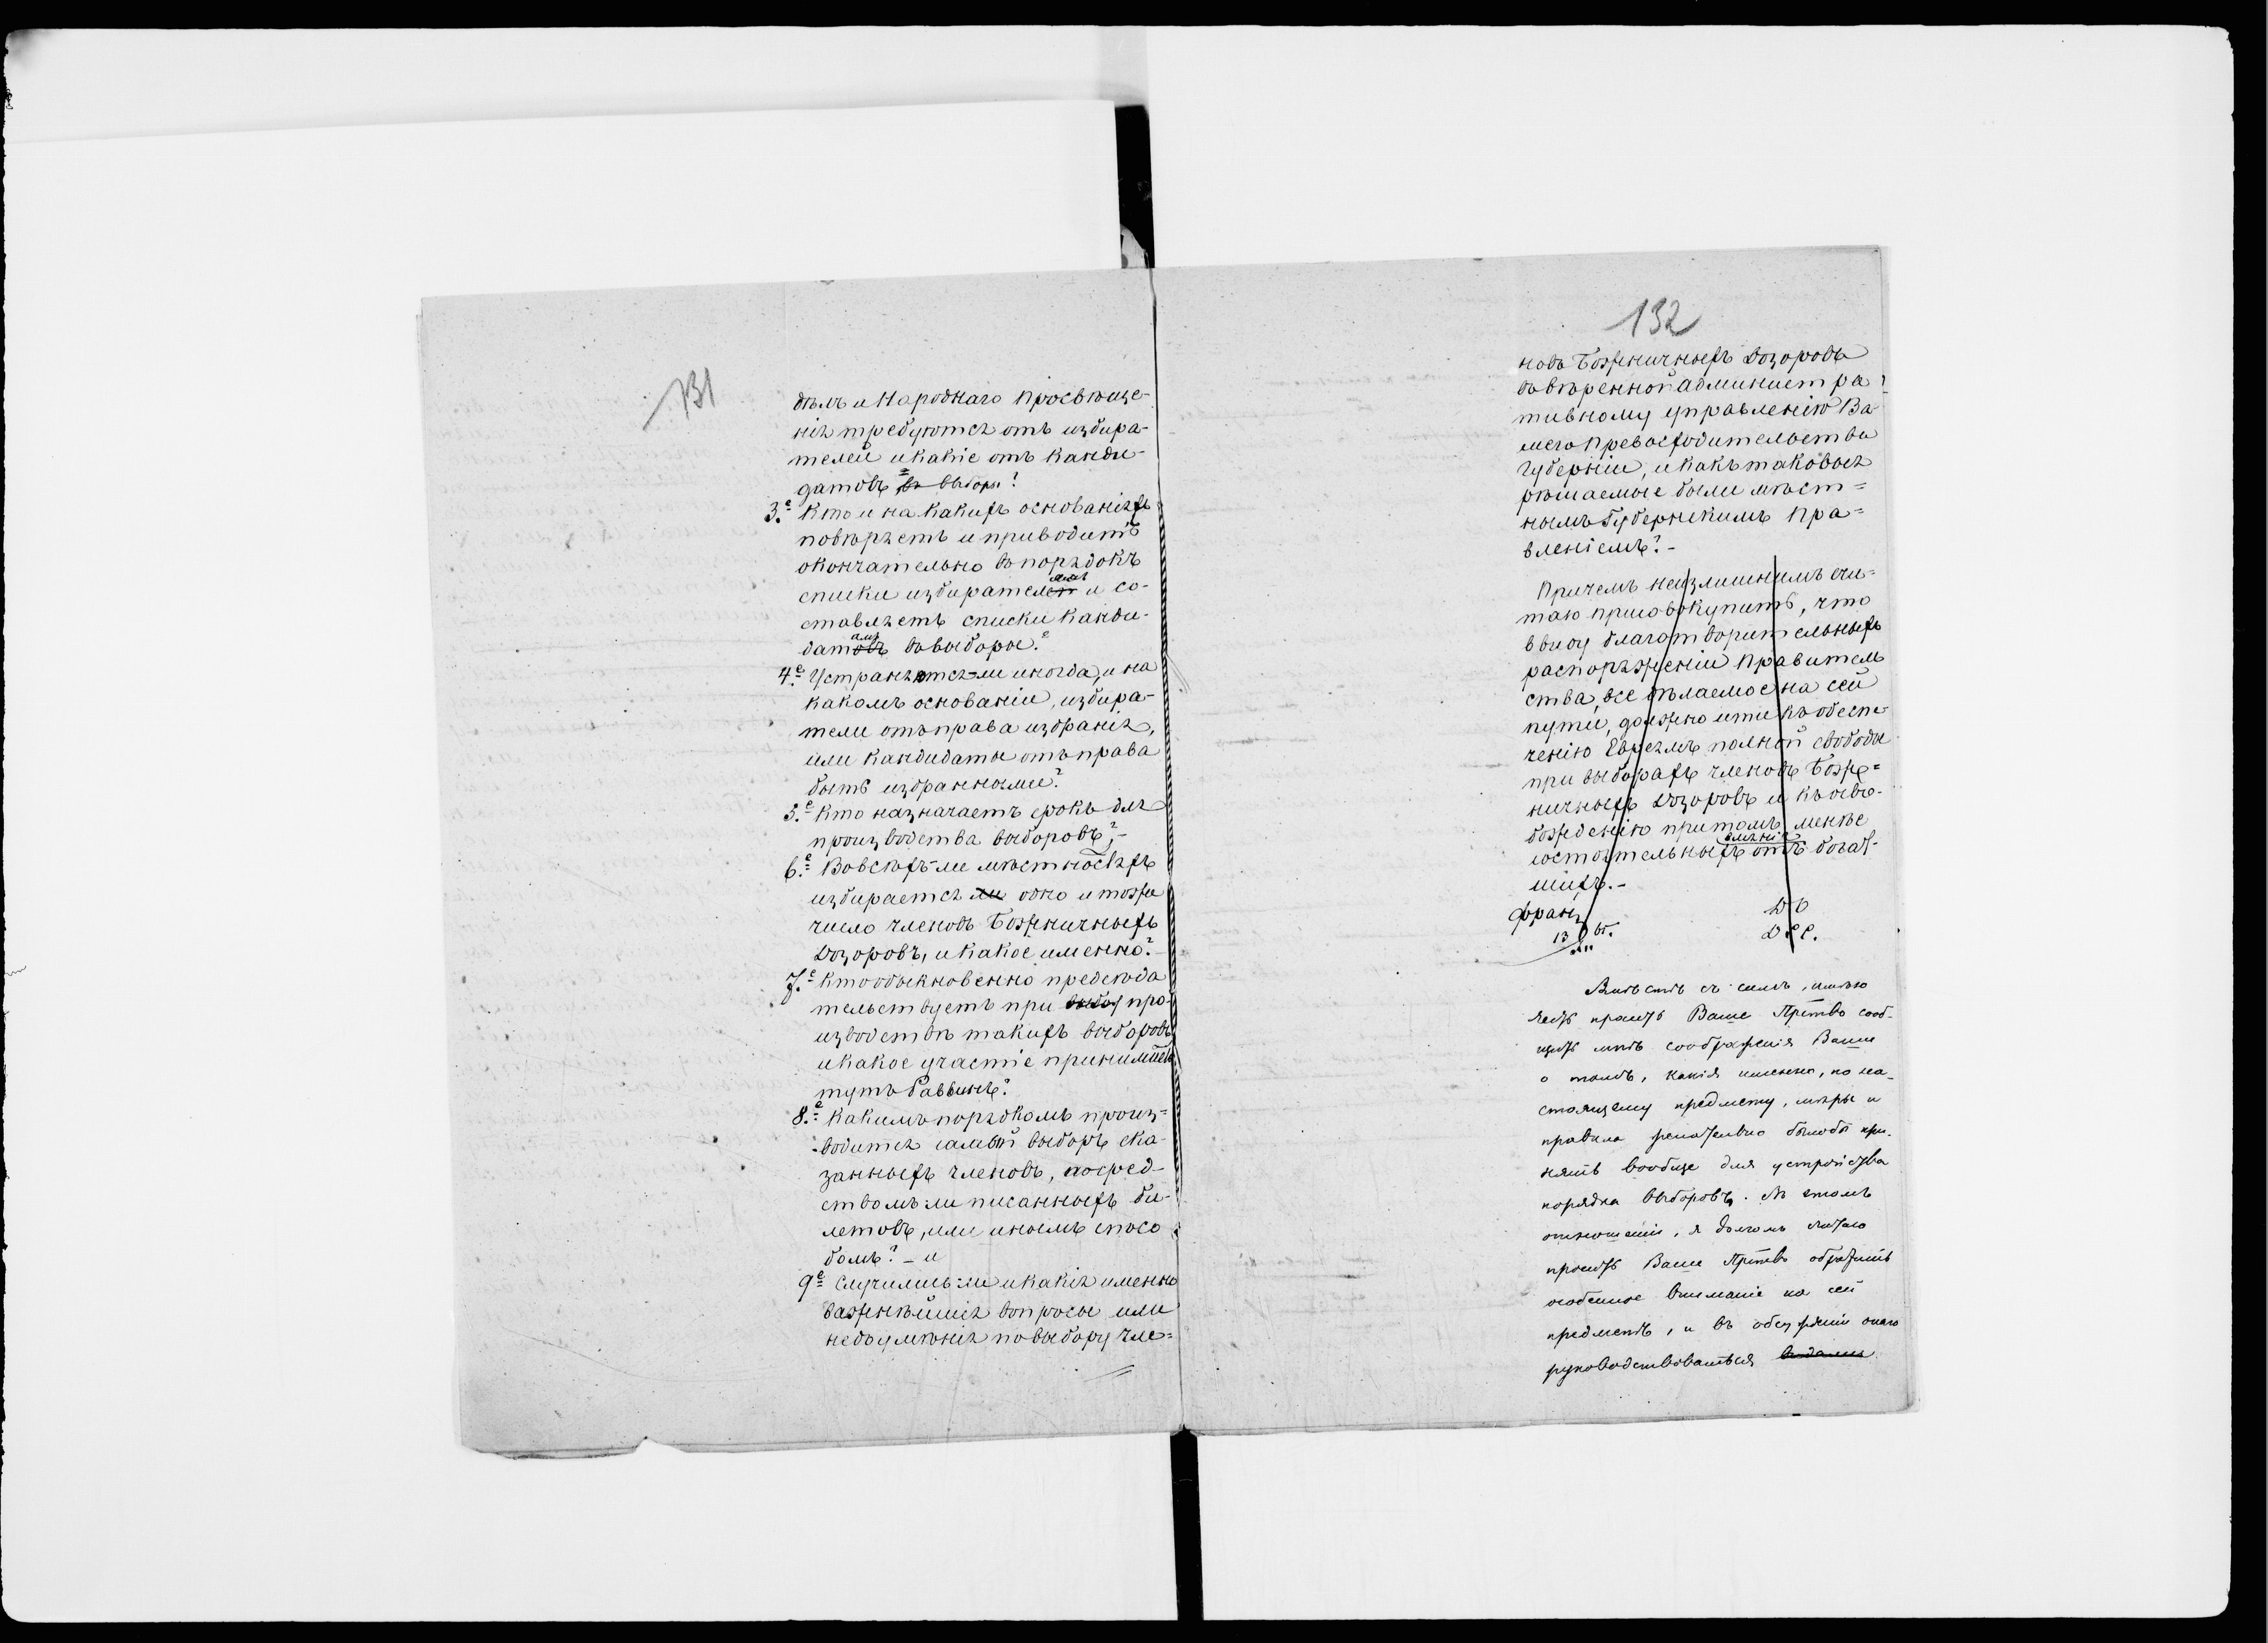 131
дѣлъ и Народнаго Просвѣще-
нія требуются отъ избира-
телей и какіе отъ Канди-
датовъ въ выборы?
3.е Кто и на какихъ основаніяхъ
повѣряетъ и приводитъ
окончательно въ порядокъ
списки избирателямъ и со-
ставляетъ списки Канди-
датамъ въ выборы?
4.е Устраняются-ли иногда, и на
какомъ основаніи, избира-
тели отъ права избранія,
или Кандидаты отъ права
быть избранными?
5.е Кто назначаетъ срокъ для
производства выборовъ?-
6.е Во всѣхъ-ли мѣстностяхъ
избирается ли одно и тоже
число членовъ Божничныхъ
Дозоровъ, и какое именно?
7.е Кто обыкновенно предсѣда
тельствуетъ при выбо про-
изводствѣ такихъ выборовъ
и какое участіе принимаетъ
тутъ Раввинъ?
8.е Какимъ порядкомъ произ=
водится самый выборъ ска-
занныхъ членовъ, посред-
ствомъ ли писанныхъ би-
летовъ, или инымъ спосо
бомъ? - и
9е Случились-ли и какія именно
важнѣйшія вопросы или
недоумѣнія по выбору чле=
132
новъ Божничныхъ Дозоровъ
въ ввѣренной Администра
тивному управленію Ва-
шего Превосходительства
Губерніи, и какъ таковыя
рѣшаемые были мѣст=
нымъ Губернскимъ Пра=
вленіемъ?-
Причемъ неизлишнимъ счи=
таю присовокупить, что
въ виду благотворительныхъ
распоряженій Правитель
ства, все дѣлаемое на сей
пути, должно ити къ обеспе-
ченію Евреямъ полной свободы
при выборахъ членовъ Божн=
ничныхъ Дозоровъ и къ осво-
божденію притомъ менѣе
состоятельныхъ отъ вліянія богат-
шихъ.-
Франц
13
Вмѣстѣ съ симъ, имѣю
честь просить Ваше Пртво сооб-
щить мнѣ соображенія Ваши
о томъ, какія именно, по на-
стоящему предмету, мѣры и
правила желательно былобы при-
нять вообще для устройства
порядка выборовъ. Въ этомъ
отношеніи, я долгомъ считаю
просить Ваше Пртво обратить
особенное вниманіе на сей
предметъ, и въ обсужденіи онаго
руководствоваться